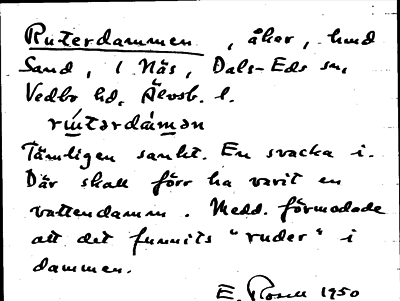 Ruterdammen, åker, hmd
Sand, i Näs, Dals-Eds sn,
Vedbo hd, Älvsb. l.
rɯ́tərdámən
Tämligen sankt. En svacka i.
Där skall förr ha varit en
vattendamm. Medd. förmodade
att det funnits "ruder" i
dammen.
E. 1950